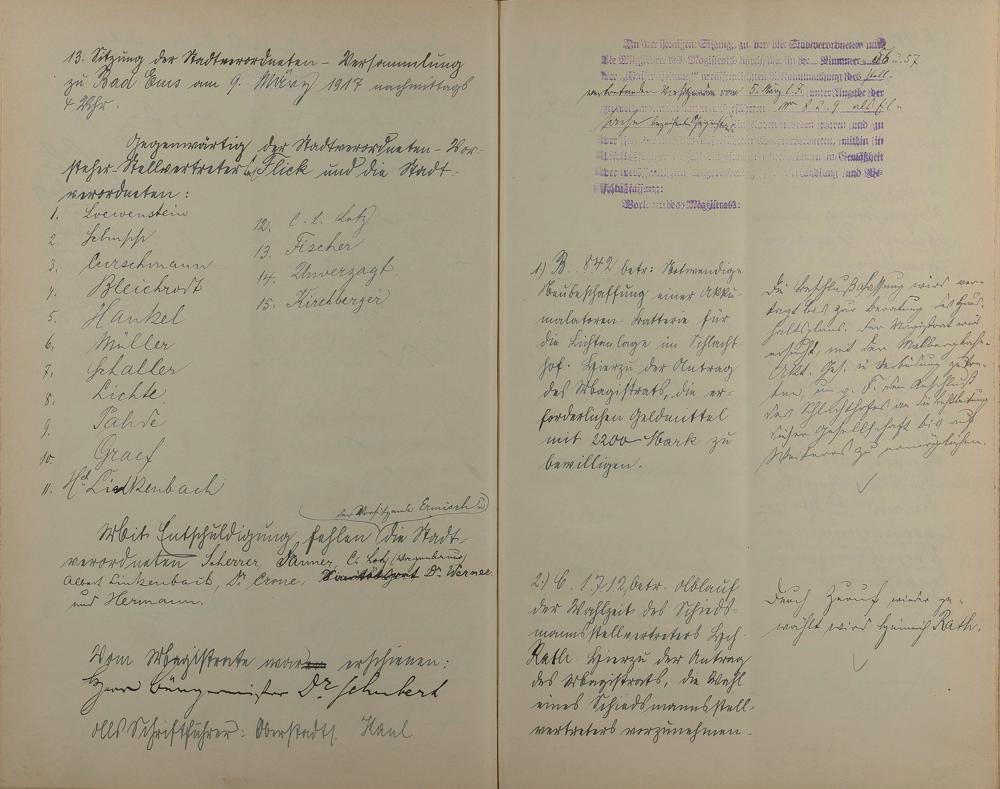 13. Sitzung der Stadtverordneten-Versammlung
zu Bad Ems am 9. März 1917 nachmittags
4 Uhr.
Gegenwärtig der Stadtverordneten-Vor-
steher-Stellvertreter Flick und die Stadt-
verordneten:
1. Loewenstein
2.
3. Curschmann
4. Bleichrodt
5. Hankel
6. Müller
7. Schaller
8. Lichte
9. Pahde
10. Graef
11. Hch. Linkenbach
12. C. L. Lotz
13. Fischer
14. Unverzagt
15. Kirchberger
der Vorsitzende Ermisch u.
Mit Entschuldigung fehlen die Stadt-
verordneten Scherrer, Danner, C. Lotz
Albert Linkenbach, Dr. Crone, Dr. Werner
und Hermann.
Vom Magistrate war erschienen:
Herr Bürgermeister Dr. Schubert
Als Schriftführer: Oberstadts. Kaul
In der heutigen Sitzung, zu der die Stadtverordneten und
die Mitglieder des Magistrats durch die in der Nummer 56 u. 57
der veröffentlichten Bekanntmachung des stell-
vertretenden Vorsitzenden vom 5. März l. J. unter Angabe der
Nr. 8 u. 9 als Eil-
sache bezeichneten Gegenstände
waren und zu
mithin in
in Gemäßheit
Verhandlung und Be-
schlußfassung:
Vorl. des Magistrats:
1) B. 842 betr: Notwendige
Neubeschaffung einer Akku-
malatoren-Batterie für
die Lichtanlage im Schlacht-
hof. Hierzu der Antrag
des Magistrats, die er-
forderlichen Geldmittel
mit 2200 Mark zu
bewilligen.
Die Beschlußfassung wird ver-
tagt bis zur Beratung des Haus-
haltsplans. Der Magistrat wird
ersucht, mit der Malbergbahn-
Akt. Ges. in Verbindung zu tre-
ten, um den Anschluß
des Schlachthofes an die Lichtleitung
dieser Gesellschaft bis auf
Weiteres zu ermöglichen.
2.) C. 1712, betr. Ablauf
der Wahlzeit des Schieds-
mannsstellvertreters Hch.
Rath. Hierzu der Antrag
des Magistrats, die Wahl
eines Schiedsmannsstell-
vertreters vorzunehmen.
Durch Zuruf wieder ge-
wählt wird Heinrich Rath.